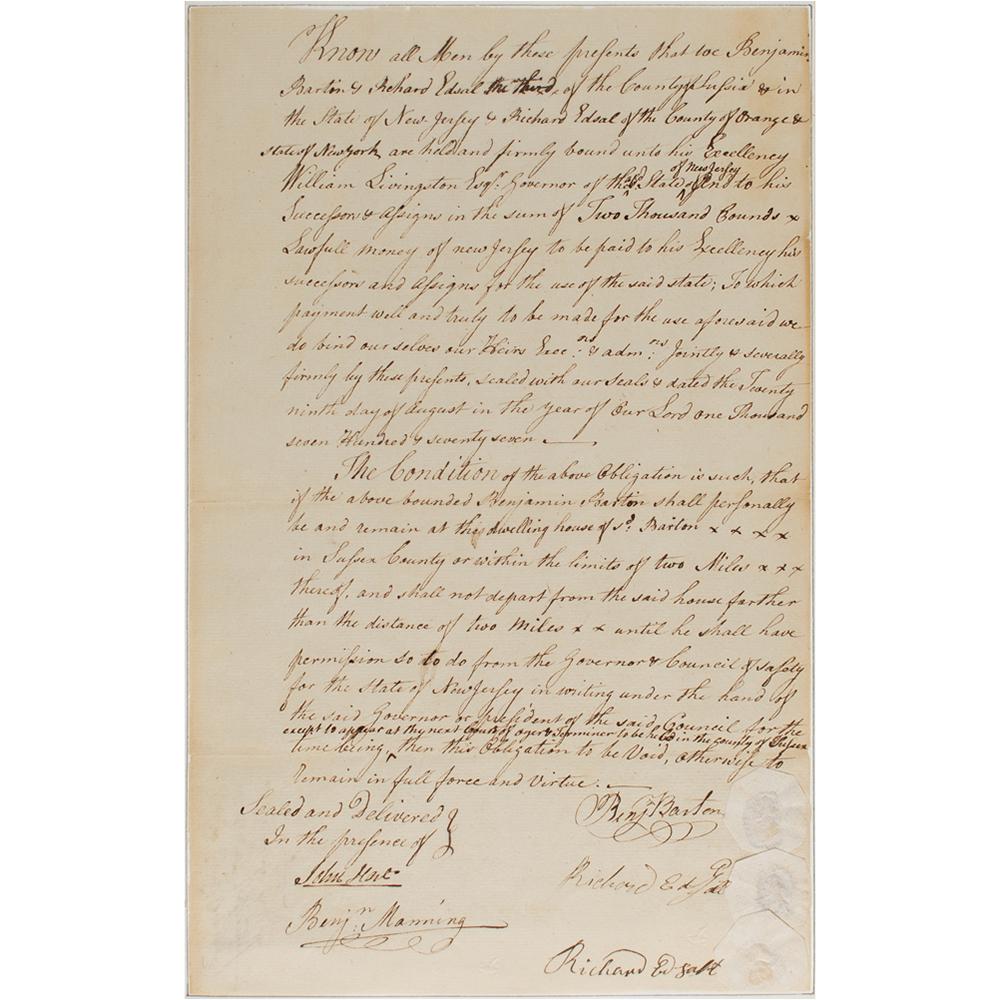 Know all Men by these presents that we Benjamin
Barton & Richard Edsal the third of the County of Sussix & in
the State of New Jersey & Richard Edsal of the County of Orange &
state of New York are held and firmly bound unto his Excellency
of New Jersey
William Livingston Esqr. Governor of the Sd State And to his
Successors & Assigns in the sum of Two Thousand Pounds x
Lawfull money of new Jersey to be paid to his Excellency his
successors and Assigns for the use of the said state; To which
payment well and truly to be made for the use aforesaid we
do bind our selves our Heirs Exec:rs & adm:rs Jointly & severally
firmly by these presents, sealed with our seals & dated the Twenty
ninth day of August in the year of Our Lord one Thousand
seven Hundred & seventy seven
The Condition of the above Obligation is such, that
if the above bounded Benjamin Barton shall personally
be and remain at the dwelling house of sd. Barton x x x x
in Sussex County or within the limits of two Miles x x x
thereof, and shall not depart from the said house farther
than the distance of two Miles x x until he shall have
permission so to do from the Governor & Council of safety
for the state of New Jersey in writing under the hand of
the said Governor or president of the said Council for the
except to appear at thy next Court of oyer & Terminer to be held in the county of Sussex
time being, then this Obligation to be Void, otherwise to
remain in full force and Virtue.
Sealed and Delivered
In the presence of
Benjn Barton
John
Richard Edsal
Benjn. Manning
Richard Edsall